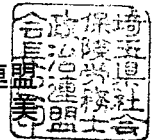 埼玉県社会
保険労務士
政治連盟
会長